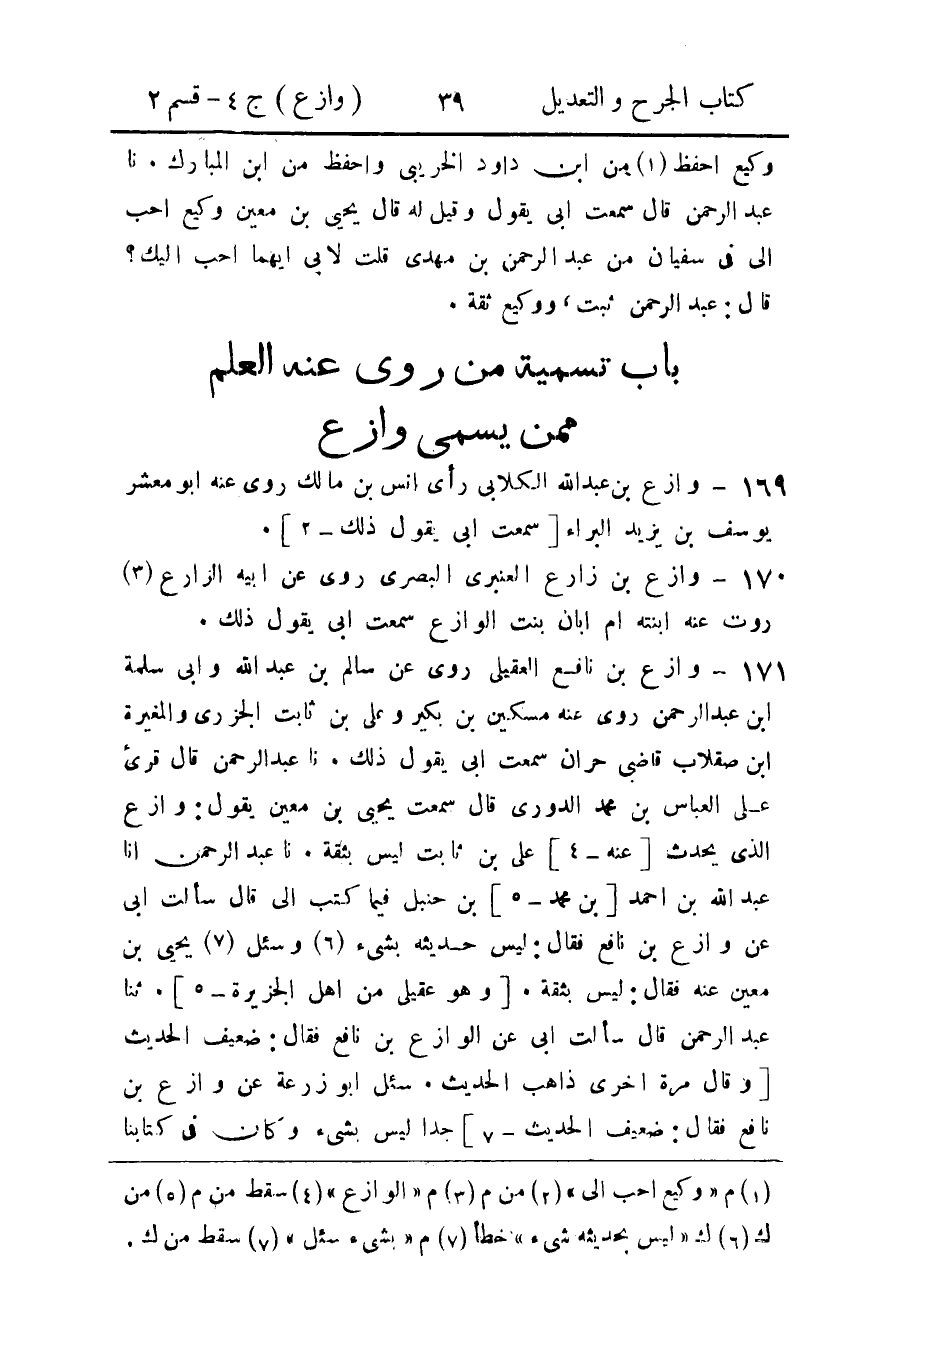 كتاب الجرح و التعديل ٣٩ (وازع) ج ٤ - قسم ٢
وكيع احفظ (١) من ابن داود الخريبى واحفظ من ابن المبارك . نا
عبد الرحمن قال سمعت ابى يقول وقيل له قال يحيى بن معين وكيع احب
الى فى سفيان من عبد الرحمن بن مهدى قلت لابى ايهما احب اليك؟
قال: عبد الرحمن ثبت، ووكيع ثقة .
باب تسمية من روى عنه العلم
ممن يسمى وازع
١٦٩ - وازع بن عبدالله الكلابى رأى انس بن مالك روى عنه ابو معشر
يوسف بن يزيد البراء [ سمعت ابى يقول ذلك - ٢ ] .
١٧٠ - وازع بن زارع العنبرى البصرى روى عن ابيه الزارع (٣)
روت عنه ابنته ام ابان بنت الوازع سمعت ابى يقول ذلك .
١٧١ - وازع بن نافع العقيلى روى عن سالم بن عبد الله وابى سلمة
ابن عبدالرحمن روى عنه مسكين بن بكير وعلى بن ثابت الجزرى والمغيرة
ابن صقلاب قاضى حران سمعت ابى يقول ذلك . نا عبدالرحمن قال قرئ
على العباس بن محمد الدورى قال سمعت يحيى بن معين يقول: وازع
الذى يحدث [ عنه - ٤ ] على بن ثابت ليس بثقة . نا عبد الرحمن انا
عبد الله بن احمد [ بن محمد - ٥ ] بن حنبل فيما كتب الى قال سألت ابى
عن وازع بن نافع فقال: ليس حديثه بشىء (٦) وسئل (٧) يحيى بن
معين عنه فقال: ليس بثقة . [ و هو عقيلى من اهل الجزيرة - ٥ ] . ثنا
عبد الرحمن قال سألت ابى عن الوازع بن نافع فقال: ضعيف الحديث
[ و قال مرة اخرى ذاهب الحديث . سئل ابو زرعة عن وازع بن
نافع فقال: ضعيف الحديث - ٧ ] جدا ليس بشىء و كان فى كتابنا
(١) م «وكيع احب الى» (٢) من م (٣) م «الوازع» (٤) سقط من م (٥) من
ك (٦) ك «ليس بحديثه شىء» خطأ (٧) م «بشىء سئل» (٧) سقط من ك .